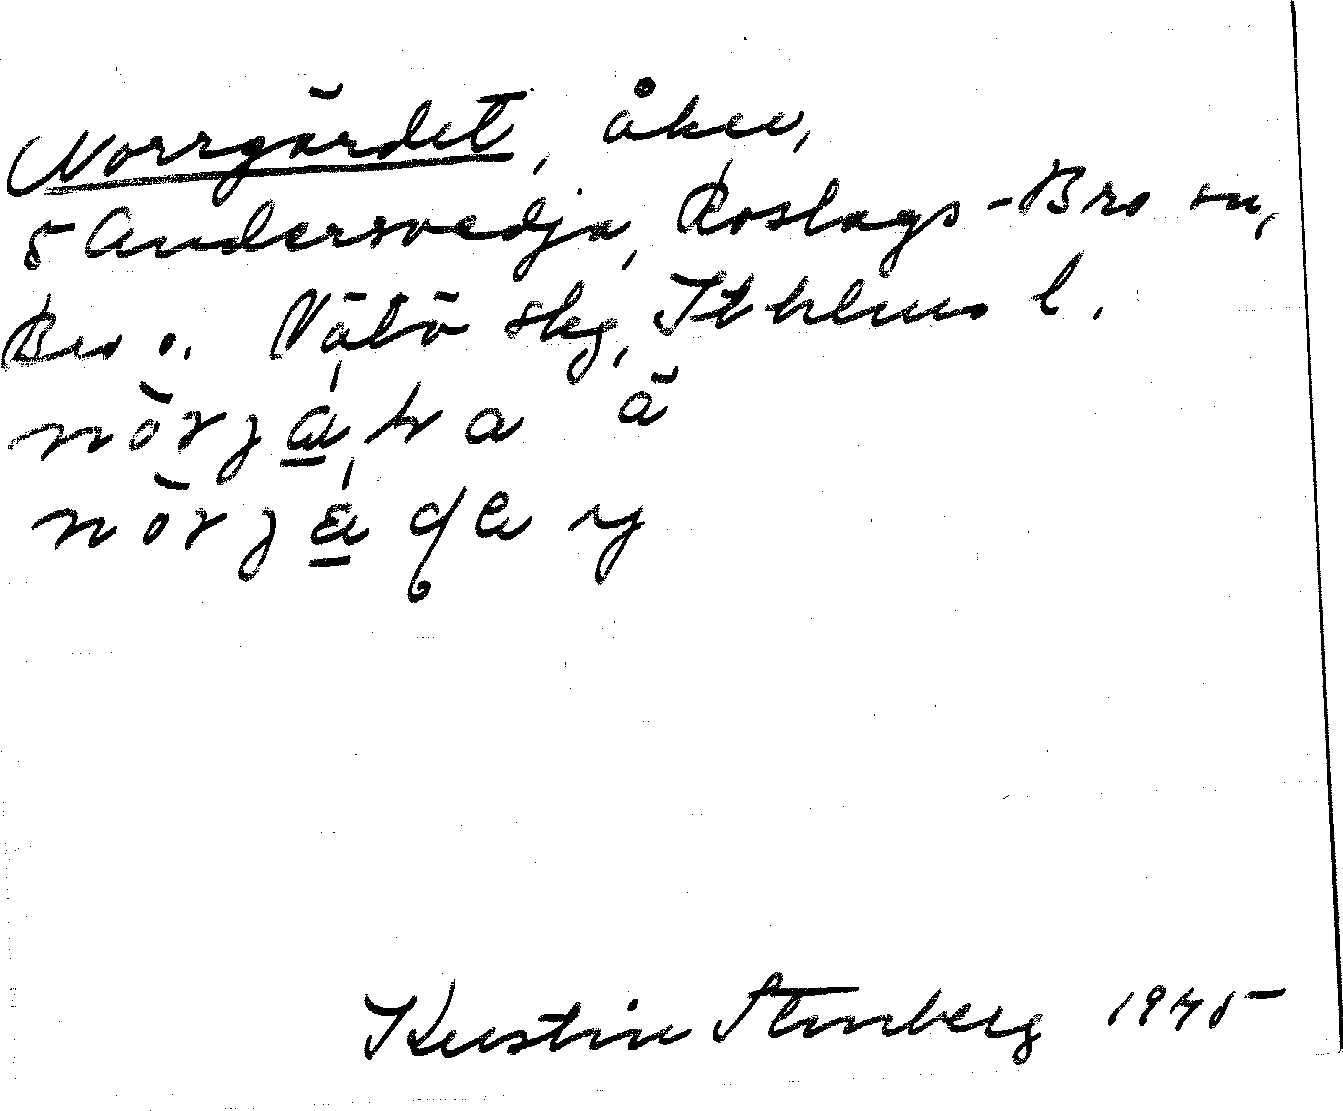 Norrgärdet, åker,
5 Andersvedja, Roslags-Bro sn,
Bro o. Vätö skg, Sthlms l.
Kerstin Stenberg 1945